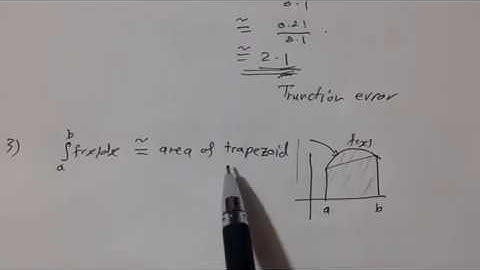 0.1
≅ 0.21
0.1
≅ 2.1
Trunction error
3) ∫ab f(x)dx ≅ area of trapezoid
f(x)
a b